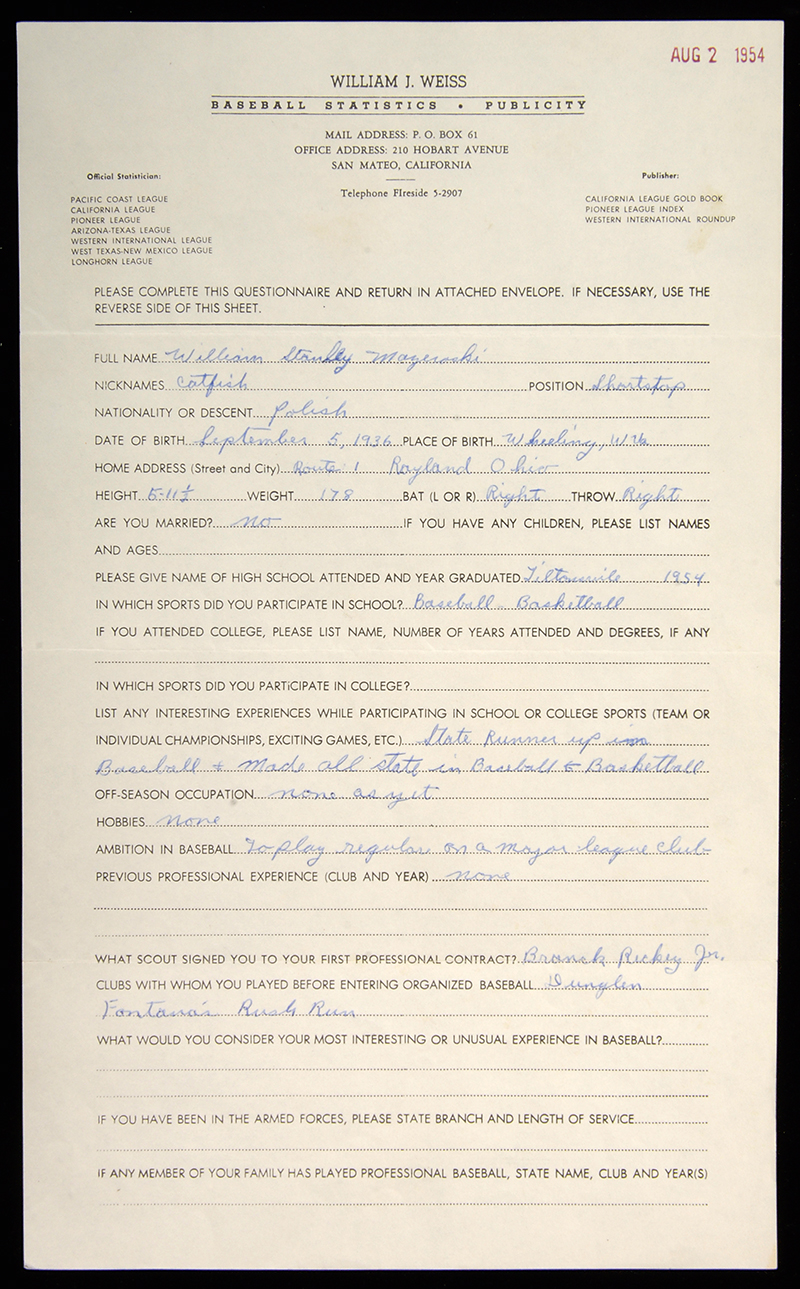 AUG 2 1954
WILLIAM J. WEISS
BASEBALL STATISTICS • PUBLICITY
MAIL ADDRESS: P. O. BOX 61
OFFICE ADDRESS: 210 HOBART AVENUE
SAN MATEO, CALIFORNIA
Telephone FIreside 5-2907
Official Statistician:
PACIFIC COAST LEAGUE
CALIFORNIA LEAGUE
PIONEER LEAGUE
ARIZONA-TEXAS LEAGUE
WESTERN INTERNATIONAL LEAGUE
WEST TEXAS-NEW MEXICO LEAGUE
LONGHORN LEAGUE
Publisher:
CALIFORNIA LEAGUE GOLD BOOK
PIONEER LEAGUE INDEX
WESTERN INTERNATIONAL ROUNDUP
PLEASE COMPLETE THIS QUESTIONNAIRE AND RETURN IN ATTACHED ENVELOPE. IF NECESSARY, USE THE
REVERSE SIDE OF THIS SHEET.
FULL NAME William Stanley Mazeroski
NICKNAMES Catfish POSITION Shortstop
NATIONALITY OR DESCENT Polish
DATE OF BIRTH September 5, 1936 PLACE OF BIRTH Wheeling, W.Va
HOME ADDRESS (Street and City) Route 1 Rayland Ohio
HEIGHT 5-11½ WEIGHT 178 BAT (L OR R) Right THROW Right
ARE YOU MARRIED? No IF YOU HAVE ANY CHILDREN, PLEASE LIST NAMES
AND AGES
PLEASE GIVE NAME OF HIGH SCHOOL ATTENDED AND YEAR GRADUATED Tiltonsville 1954
IN WHICH SPORTS DID YOU PARTICIPATE IN SCHOOL? Baseball Basketball
IF YOU ATTENDED COLLEGE, PLEASE LIST NAME, NUMBER OF YEARS ATTENDED AND DEGREES, IF ANY
IN WHICH SPORTS DID YOU PARTICIPATE IN COLLEGE?
LIST ANY INTERESTING EXPERIENCES WHILE PARTICIPATING IN SCHOOL OR COLLEGE SPORTS (TEAM OR
INDIVIDUAL CHAMPIONSHIPS, EXCITING GAMES, ETC.) State Runner up in
Baseball & Made all state in Baseball & Basketball
OFF-SEASON OCCUPATION none as yet
HOBBIES None
AMBITION IN BASEBALL To play regular on a major league club
PREVIOUS PROFESSIONAL EXPERIENCE (CLUB AND YEAR) None
WHAT SCOUT SIGNED YOU TO YOUR FIRST PROFESSIONAL CONTRACT? Branch Rickey Jr.
CLUBS WITH WHOM YOU PLAYED BEFORE ENTERING ORGANIZED BASEBALL Dunglen
Fontana's Rush Run
WHAT WOULD YOU CONSIDER YOUR MOST INTERESTING OR UNUSUAL EXPERIENCE IN BASEBALL?
IF YOU HAVE BEEN IN THE ARMED FORCES, PLEASE STATE BRANCH AND LENGTH OF SERVICE
IF ANY MEMBER OF YOUR FAMILY HAS PLAYED PROFESSIONAL BASEBALL, STATE NAME, CLUB AND YEAR(S)